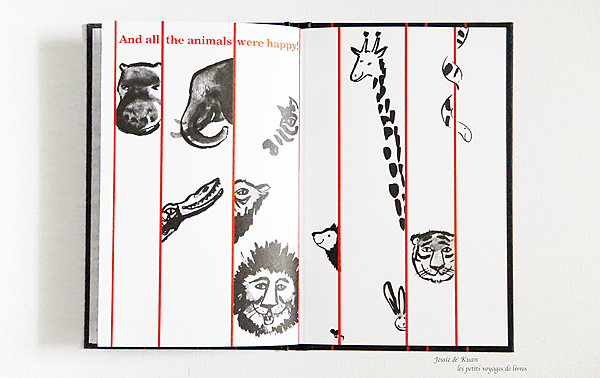 And all the animals were happy!
Jessie & Kuan
les petits voyages de livres